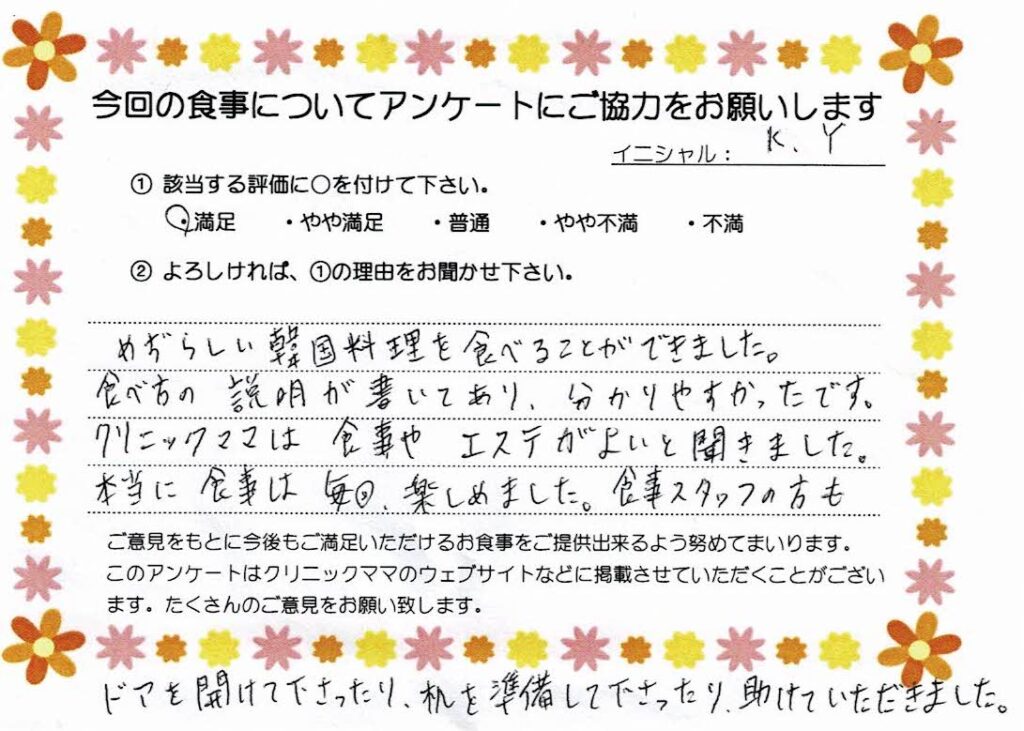 今回の食事についてアンケートにご協力をお願いします
イニシャル： K、Y
① 該当する評価に○を付けて下さい。
・満足 ・やや満足 ・普通 ・やや不満 ・不満
② よろしければ、①の理由をお聞かせ下さい。
めずらしい韓国料理を食べることができました。
食べ方の説明が書いてあり、分かりやすかったです。
クリニックママは食事やエステがよいと聞きました。
本当に食事は毎回、楽しめました。食事スタッフの方も
ご意見をもとに今後もご満足いただけるお食事をご提供出来るよう努めてまいります。
このアンケートはクリニックママのウェブサイトなどに掲載させていただくことがござい
ます。たくさんのご意見をお願い致します。
ドアを開けて下さったり、机を準備して下さったり、助けていただきました。